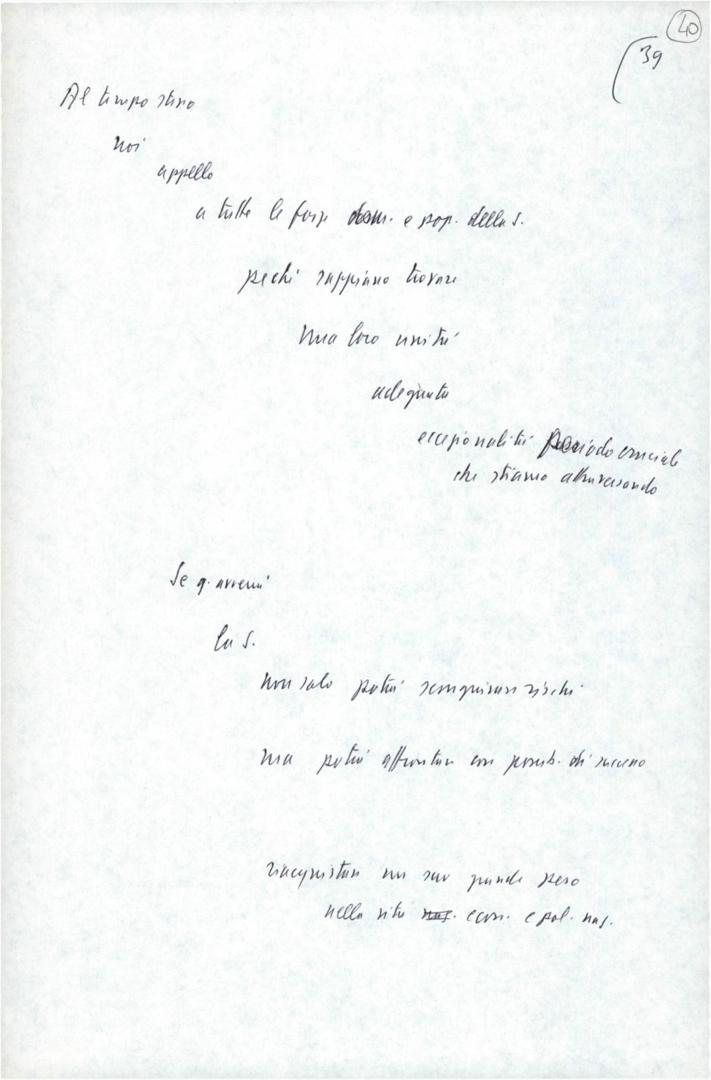 40
39
Al tempo stesso
noi
appello
a tutte le forze dem. e pop. della S.
perché sappiano trovare
una loro unità
adeguata
eccezionalità periodo cruciale
che stiamo attraversando
Se q. avverrà
la S.
non solo potrà scongiurare rischi
ma potrà affrontare con possib. di successo
riacquistare un suo grande peso
nella vita naz. econ. e pol. naz.